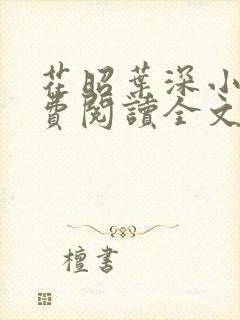 茌昭葉深小
費閱讀全文
檀書